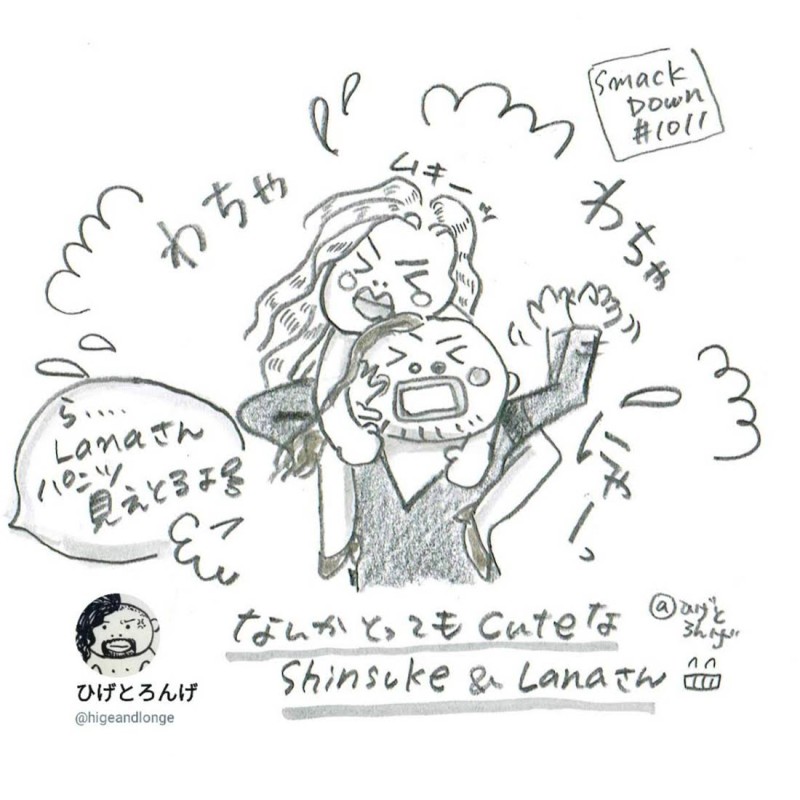 Smack
Down
#1011
ムキーッ
わちゃ
わちゃ
にゃーっ
ら‥‥
Lanaさん
パンツ
見えとるよ号
ひげとろんげ
@higeandlonge
なんかとってもCuteな
Shinsuke & Lanaさん
@ひげと
ろんげ